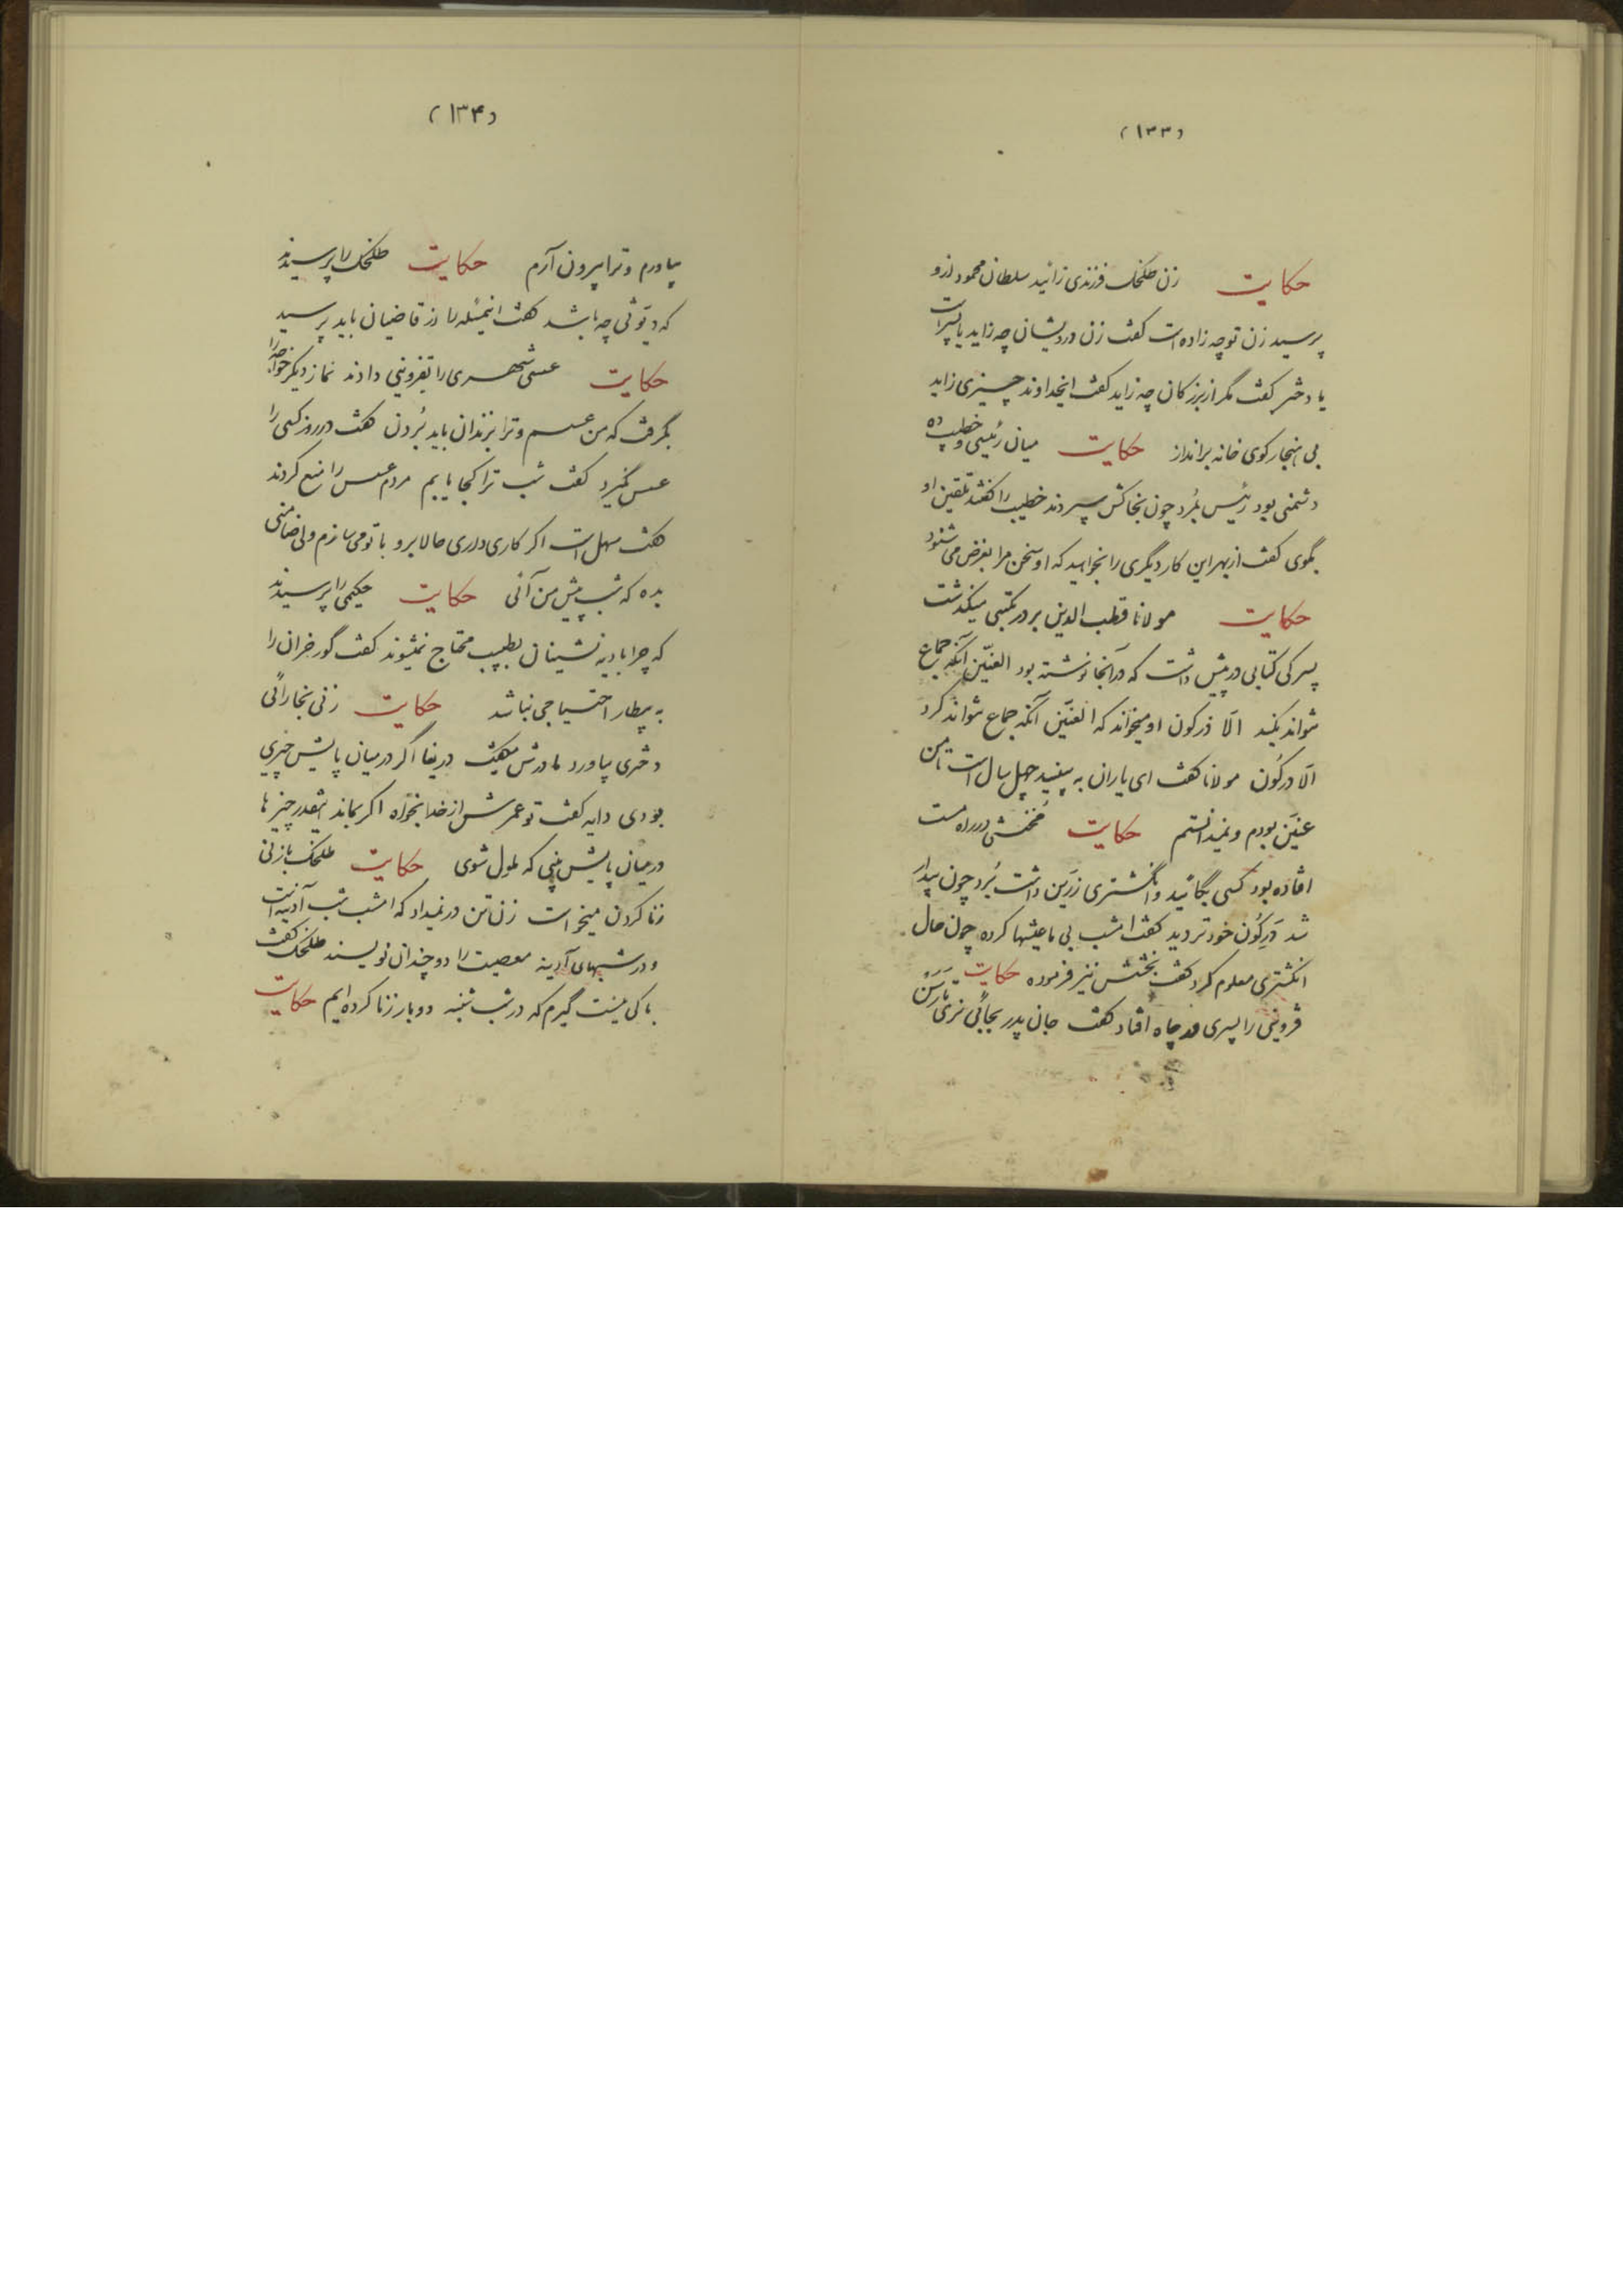 (۱۳۳)
حکایت زن طلخک فرزندی زائید سلطان محمود ازو
پرسید زن تو چه زاده است گفت زن درویشان چه زاید یا پسر است
یا دختر گفت مگر از بزرگان چه زاید گفت ایخداوند چیزی زاید
بی هنجار گوی خانه برانداز حکایت میان رئیسی و خطیب ده
دشمنی بود رئیس بمرد چون بخاکش سپردند خطیب را گفتند تلقین او
بگوی گفت از بهر این کار دیگری را بخواهید که او سخن مرا بغرض می شنود
حکایت مولانا قطب الدین بر در مکتبی میگذشت
پسرکی کتابی در پیش داشت که در آنجا نوشته بود العنّین آنکه جماع
نتواند بکند الّا در کون او میخواند که العنّین آنکه جماع نتواند کرد
الّا در کُون مولانا گفت ای یاران به بینید چهل سال است تا من
عنّین بودم و نمیدانستم حکایت مُخنثی در راه مست
افتاده بود کسی بگائید و انگشتری زرّین داشت بُرد چون بیدار
شد در کُون خود تر دید گفت امشب بی ما عیشها کرده چون حال
انگشتری معلوم کرد گفت بخشش نیز فرموده حکایت
قزوینی را پسری در چاه افتاد گفت جان پدر بجائی نروی تا رسن
(۱۳۴)
بیاورم و ترا بیرون آرم حکایت طلخک را پرسیدند
که دیّوثی چه باشد گفت اینمسئله را از قاضیان باید پرسید
حکایت عسسی شهری را بقزوینی دادند نماز دیگر خواجه را
بگرفت که من عسسم و ترا بزندان باید بُردن گفت در روز کسی را
عسس نگیرد گفت شب ترا کجا یابیم مردم عسس را منع کردند
گفت سهل است اگر کاری داری حالا برو با تو می سازم ولی ضامنی
بده که شب پیش من آئی حکایت حکیمی را پرسیدند
که چرا بادیه نشینان بطبیب محتاج نمیشوند گفت گورخران را
به بیطار احتیاجی نباشد حکایت زنی بخارائی
دختری بیاورد مادرش میگفت دریغا اگر در میان پایش چیزی
بودی دایه گفت تو عمرش از خدا بخواه اگر بماند آنقدر چیزها
در میان پایش بینی که ملول شوی حکایت طلخک با زنی
زنا کردن میخواست زن تن در نمیداد که امشب شب آدینه است
و در شبهای آدینه معصیت را دوچندان نویسند طلخک گفت
باکی نیست گیرم که در شب شنبه دو بار زنا کرده ایم حکایت